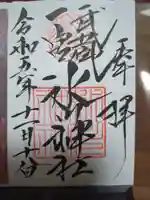 奉拝
武蔵
一宮
氷川神社
令和五年十一月十日